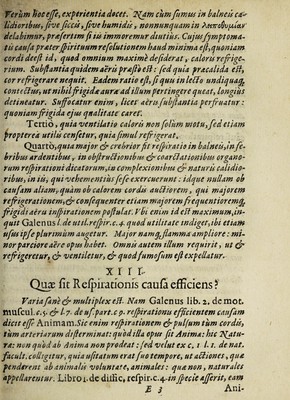 Verum hoc esse, experientia docet. Nam cùm sumus in balneis ca-
lidioribus, siue siccis, siue humidis, nonnunquam in λειποθυμίαν
delabimur, præsertim si iis immoremur diutius. Cuius symptoma-
tis causa præter spirituum resolutionem haud minima est, quoniam
cordi deest id, quod omnium maximè desiderat, calorū refrige-
rium. Substantia quidem aëris præstò est: sed quia præcalida est,
cor refrigerare nequit. Eadem ratio est, si quis in lecto undiq́
contectus, ut nihil frigidæ auræ ad illum pertingere queat, longius
detineatur. Suffocatur enim, licet aëris substantia perfruatur:
quoniam frigida eius qualitate caret.
Tertiò, quia ventilatio caloris non solùm motu, sed etiam
propterea utilis censetur, quia simul refrigerat.
Quartò, quia maior & crebrior fit respiratio in balneis, in fe-
bribus ardentibus, in obstructionibus & coarctationibus organo-
rum respirationi dicatorum, in complexionibus & naturis calidio-
ribus, in iis, qui vehementius sese exercuerunt: idque nullam ob
causam aliam, quàm ob calorem cordis auctiorem, qui maiorem
refrigerationem, & consequenter etiam maiorem frequentioremq́
frigidi aëris inspirationem postulat. Vbi enim id est maximum, in-
quit Galenus l. de util. respir. c. 4. quod utilitate indiget, ibi etiam
usus ipse plurimùm augetur. Maior namq́ flamma ampliore: mi-
nor parciore aëre opus habet. Omnis autem illum requirit, ut &
refrigeretur, & ventiletur, & quod fumosum est expellatur.
XIII.
Quæ sit Respirationis causa efficiens?
Varia sanè & multiplex est. Nam Galenus lib. 2. de mot.
muscul. c. 5. & l. 7. de us. part. c. 9. respirationis efficientem causam
dicit esse Animam. Sic enim respirationem & pulsum tùm cordis,
tùm arteriarum disterminat: quòd illa opus sit Animæ: hic Natu-
ræ: non quòd ab Anima non prodeat: sed velut ex c. 1. l. 1. de nat.
facult. colligitur, quia usitatum erat suo tempore, ut actiones, quæ
penderent ab animalis voluntate, animales: quæ non, naturales
appellarentur. Libro 1. de diffic, respir. c. 4. in specie asserit, eam
E 3 Ani-